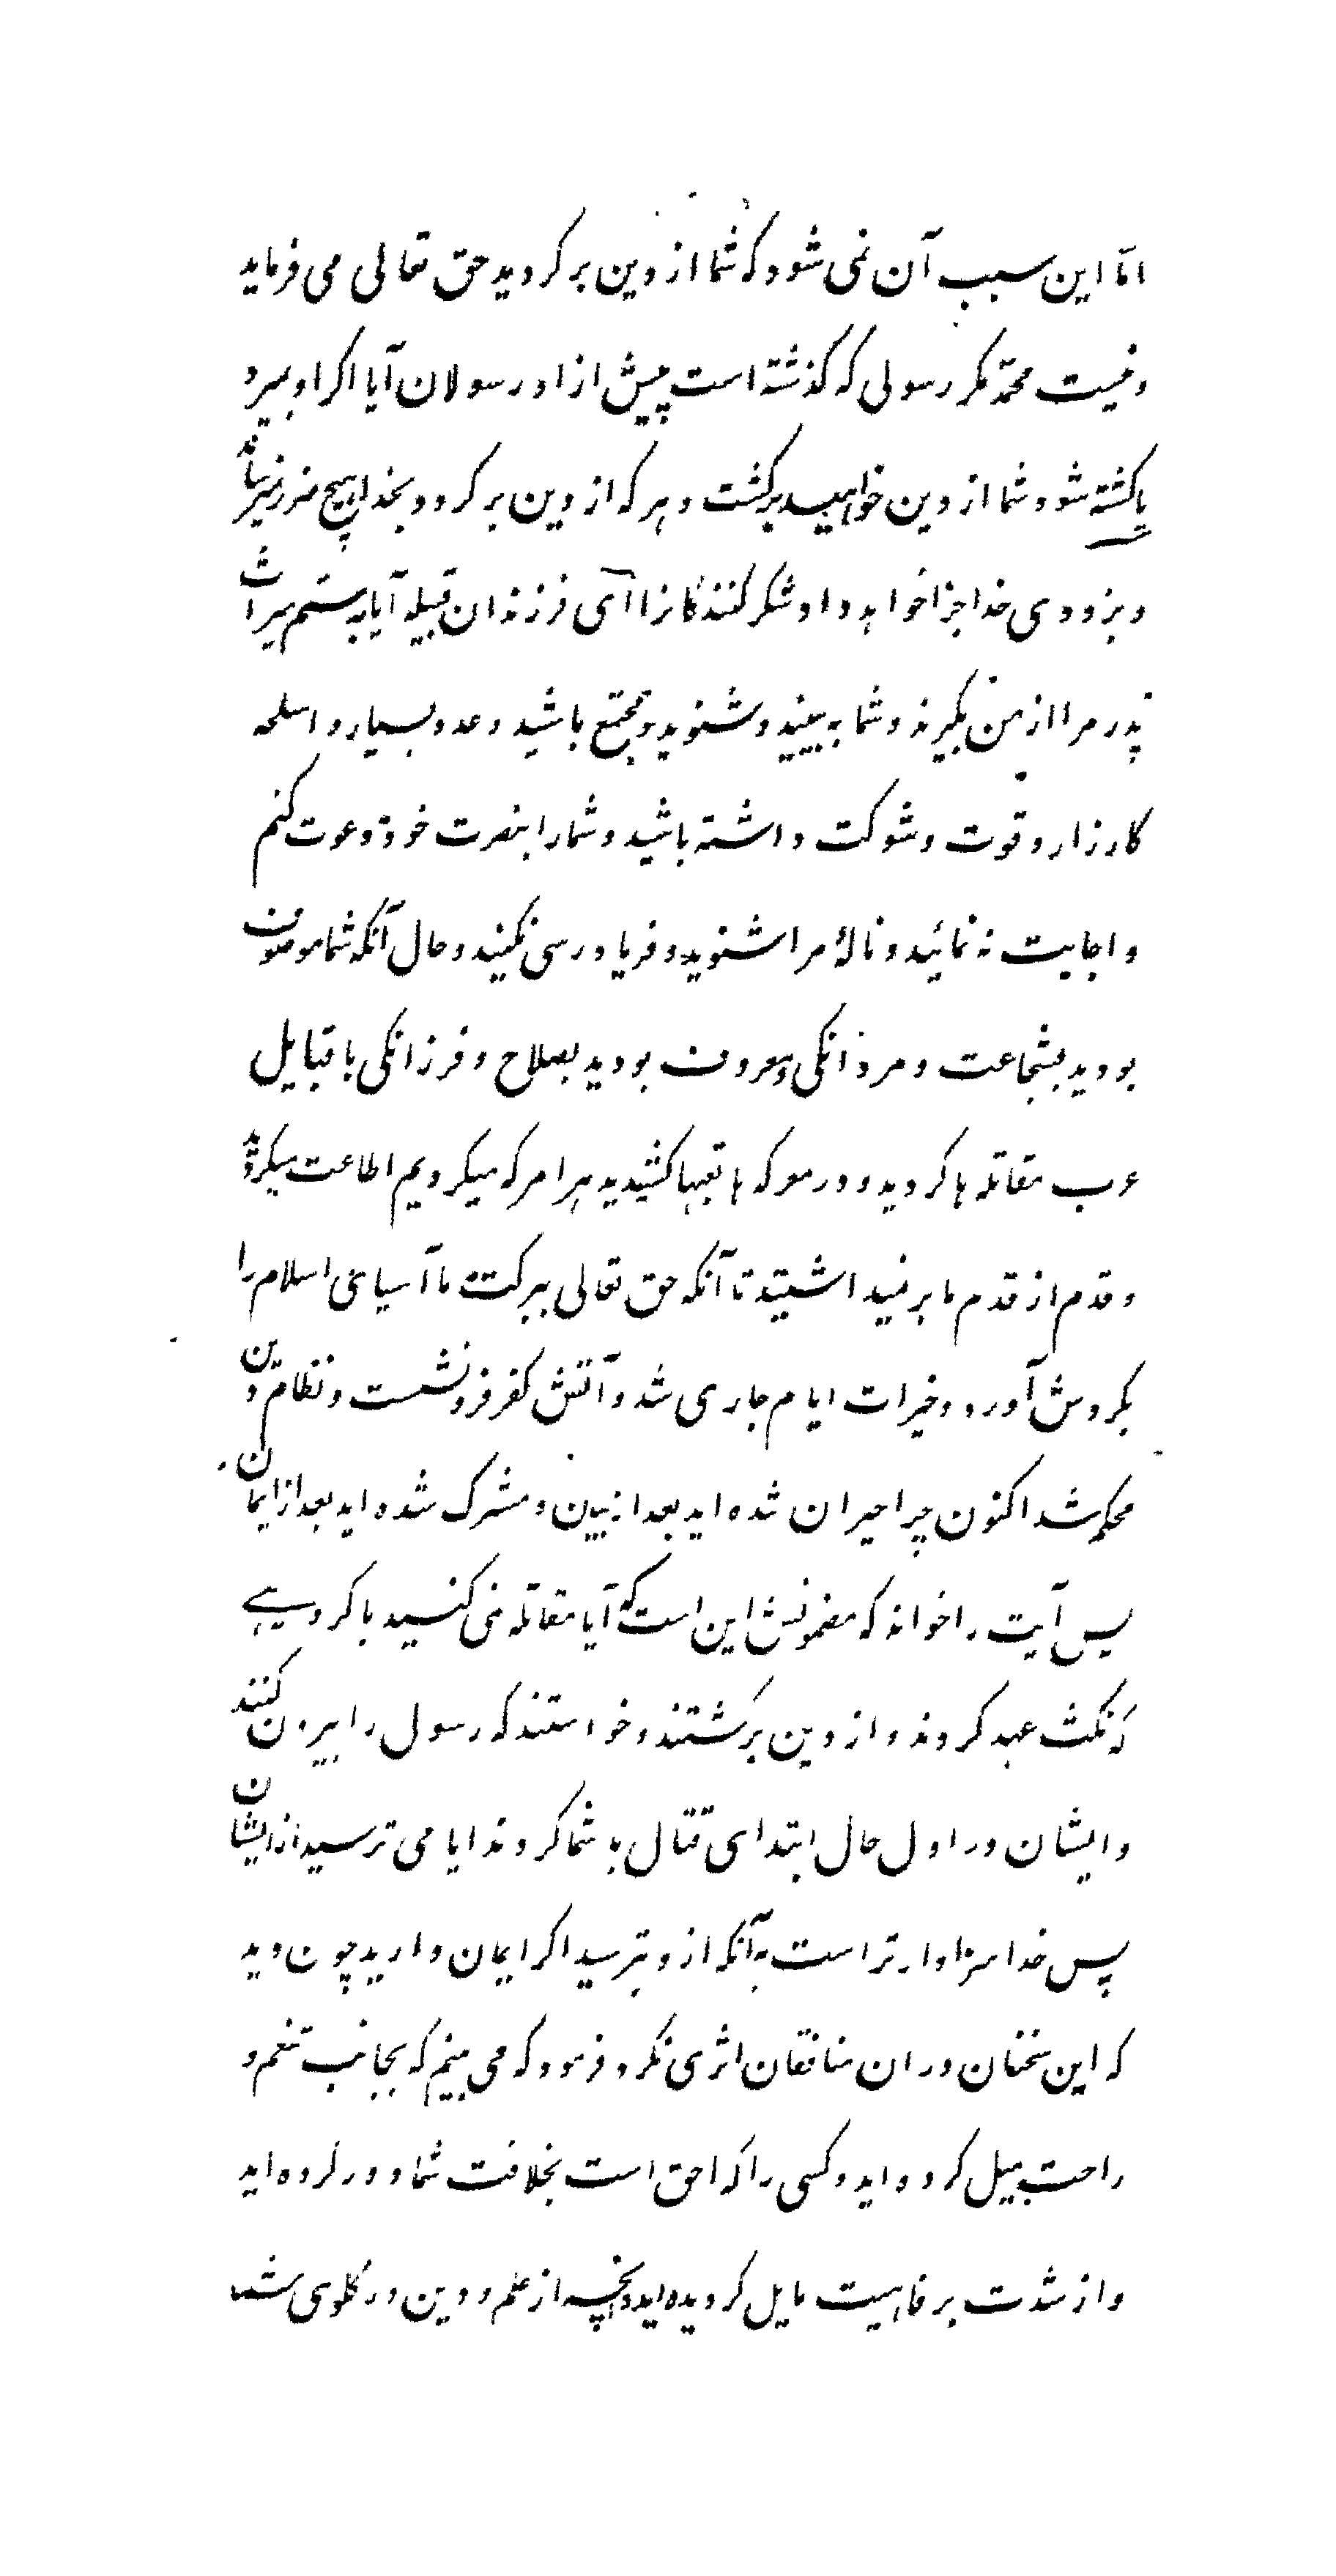 امّا این سبب آن نمی شود که شما از دین برکردید حق تعالی می فرماید
و نیست محمّد مکر رسولی که کذشته است پیش از او رسولان آیا اکر او بمیرد
یا کشته شود شما از دین خواهید برکشت و هر که از دین برکردد بخدا هیچ ضرر نمیرساند
و بزودی خدا جزا خواهد داد شکر کنندکانرا آی فرزندان قبیله آیا به ستم میراث
پدر مرا از من بکیرند و شما به بینید و شنوید و مجتمع باشید و عدد بسیار و اسلحه
کارزار و قوت و شوکت داشته باشید و شما را بنصرت خود دعوت کنم
و اجابت نه نمائید و ناله مرا شنوید و فریاد رسی نکنید و حال آنکه شما موصوف
بودید بشجاعت و مردانکی و معروف بودید بصلاح و فرزانکی با قبایل
عرب مقاتله ها کردید و در معرکه ها تعبها کشیدید هر امر که میکردیم اطاعت میکردید
و قدم از قدم ما بر نمیداشتید تا آنکه حق تعالی ببرکت ما آسیای اسلام را
بکردش آورد و خیرات ایام جاری شد و آتش کفر فرو نشست و نظام دین
محکم شد اکنون چرا حیران شده اید بعد از بیان و مشرک شده اید بعد از ایمان
پس آیت را خواند که مضمونش این است که آیا مقاتله نمی کنید با کروهی
که نکث عهد کردند و از دین برکشتند و خواستند که رسول را بیرون کنند
و ایشان در اول حال ابتدای قتال با شما کردند ایا می ترسید از ایشان
پس خدا سزاوارتر است به آنکه از و بترسید اکر ایمان دارید چون دید
که این سخنان در ان منافقان اثری نکرد فرمود که می بینم که بجانب تنعم و
راحت میل کرده اید و کسی را که احق است بخلافت شما دور کرده اید
و از شدت بر فاهیت مایل کردیده اید و آنچه از علم و دین در کلوی شما